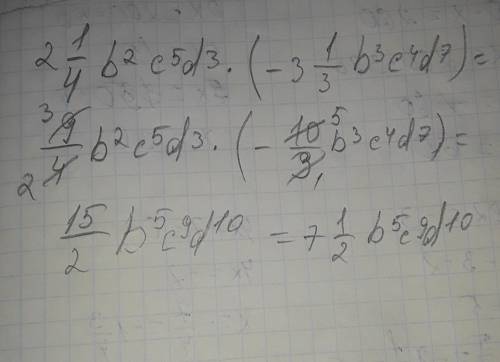 2 1/4 b² c⁵d³ · (-3 1/3 b³c⁴d⁷) =
9³/4₂ b² c⁵d³ · (-10⁵/3₁ b³ c⁴d⁷) =
15/2 b⁵c⁹d¹⁰ = 7 1/2 b⁵c⁹d¹⁰